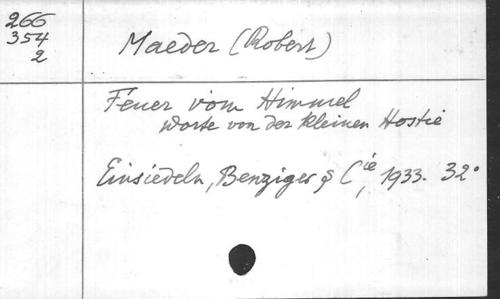 266
354
2
Maeder (Robert)
Feuer vom Himmel
Worte von der kleinen Hostie
Einsiedeln, Benziger & Cie, 1933. 32°